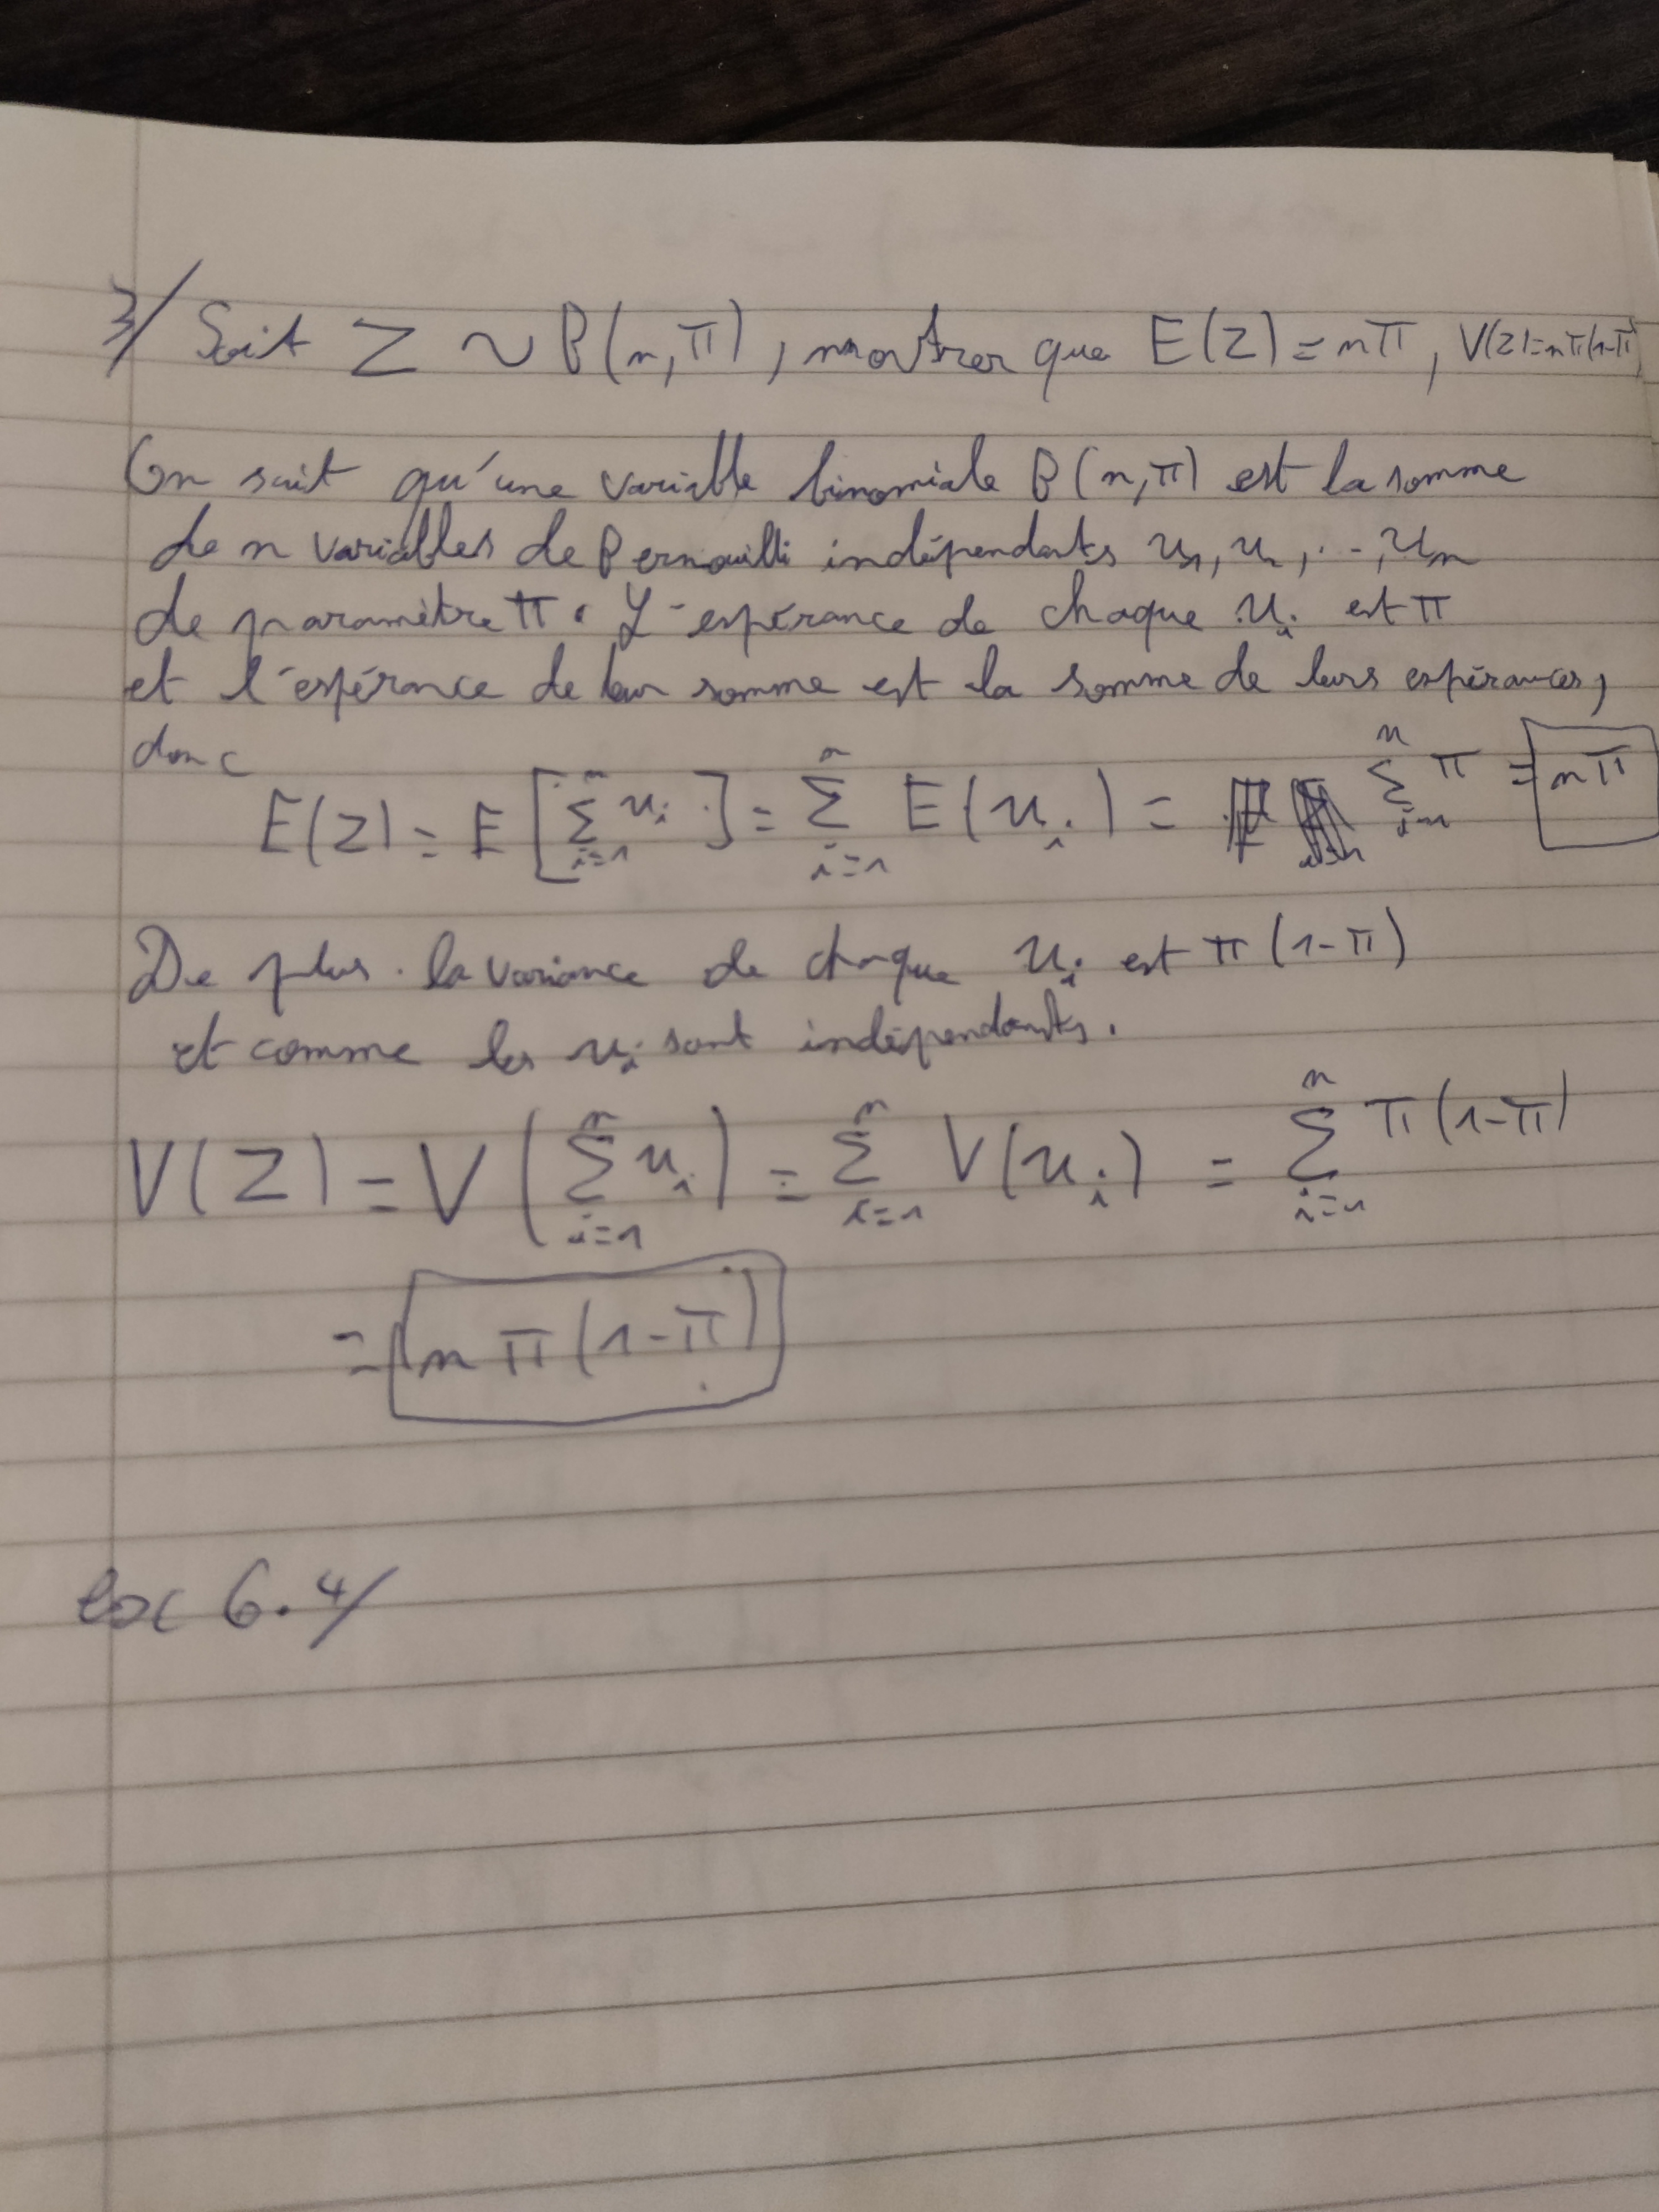 3/ Soit Z ~ B(n,π), montrer que E(Z)=nπ, V(Z)=nπ(1-π)
On sait qu'une variable binomiale B(n,π) est la somme
de n variables de Bernouilli indépendants u₁, u₂, ..., uₙ
de paramètre π. L'espérance de chaque uᵢ est π
et l'espérance de leur somme est la somme de leurs espérances,
donc
E(Z) = E[∑ᵢ₌₁ⁿ uᵢ] = ∑ᵢ₌₁ⁿ E(uᵢ) = ∑ᵢ₌₁ⁿ π = nπ
De plus. la variance de chaque uᵢ est π(1-π)
et comme les uᵢ sont indépendants.
V(Z) = V(∑ᵢ₌₁ⁿ uᵢ) = ∑ᵢ₌₁ⁿ V(uᵢ) = ∑ᵢ₌₁ⁿ π(1-π)
= nπ(1-π)
6.4/